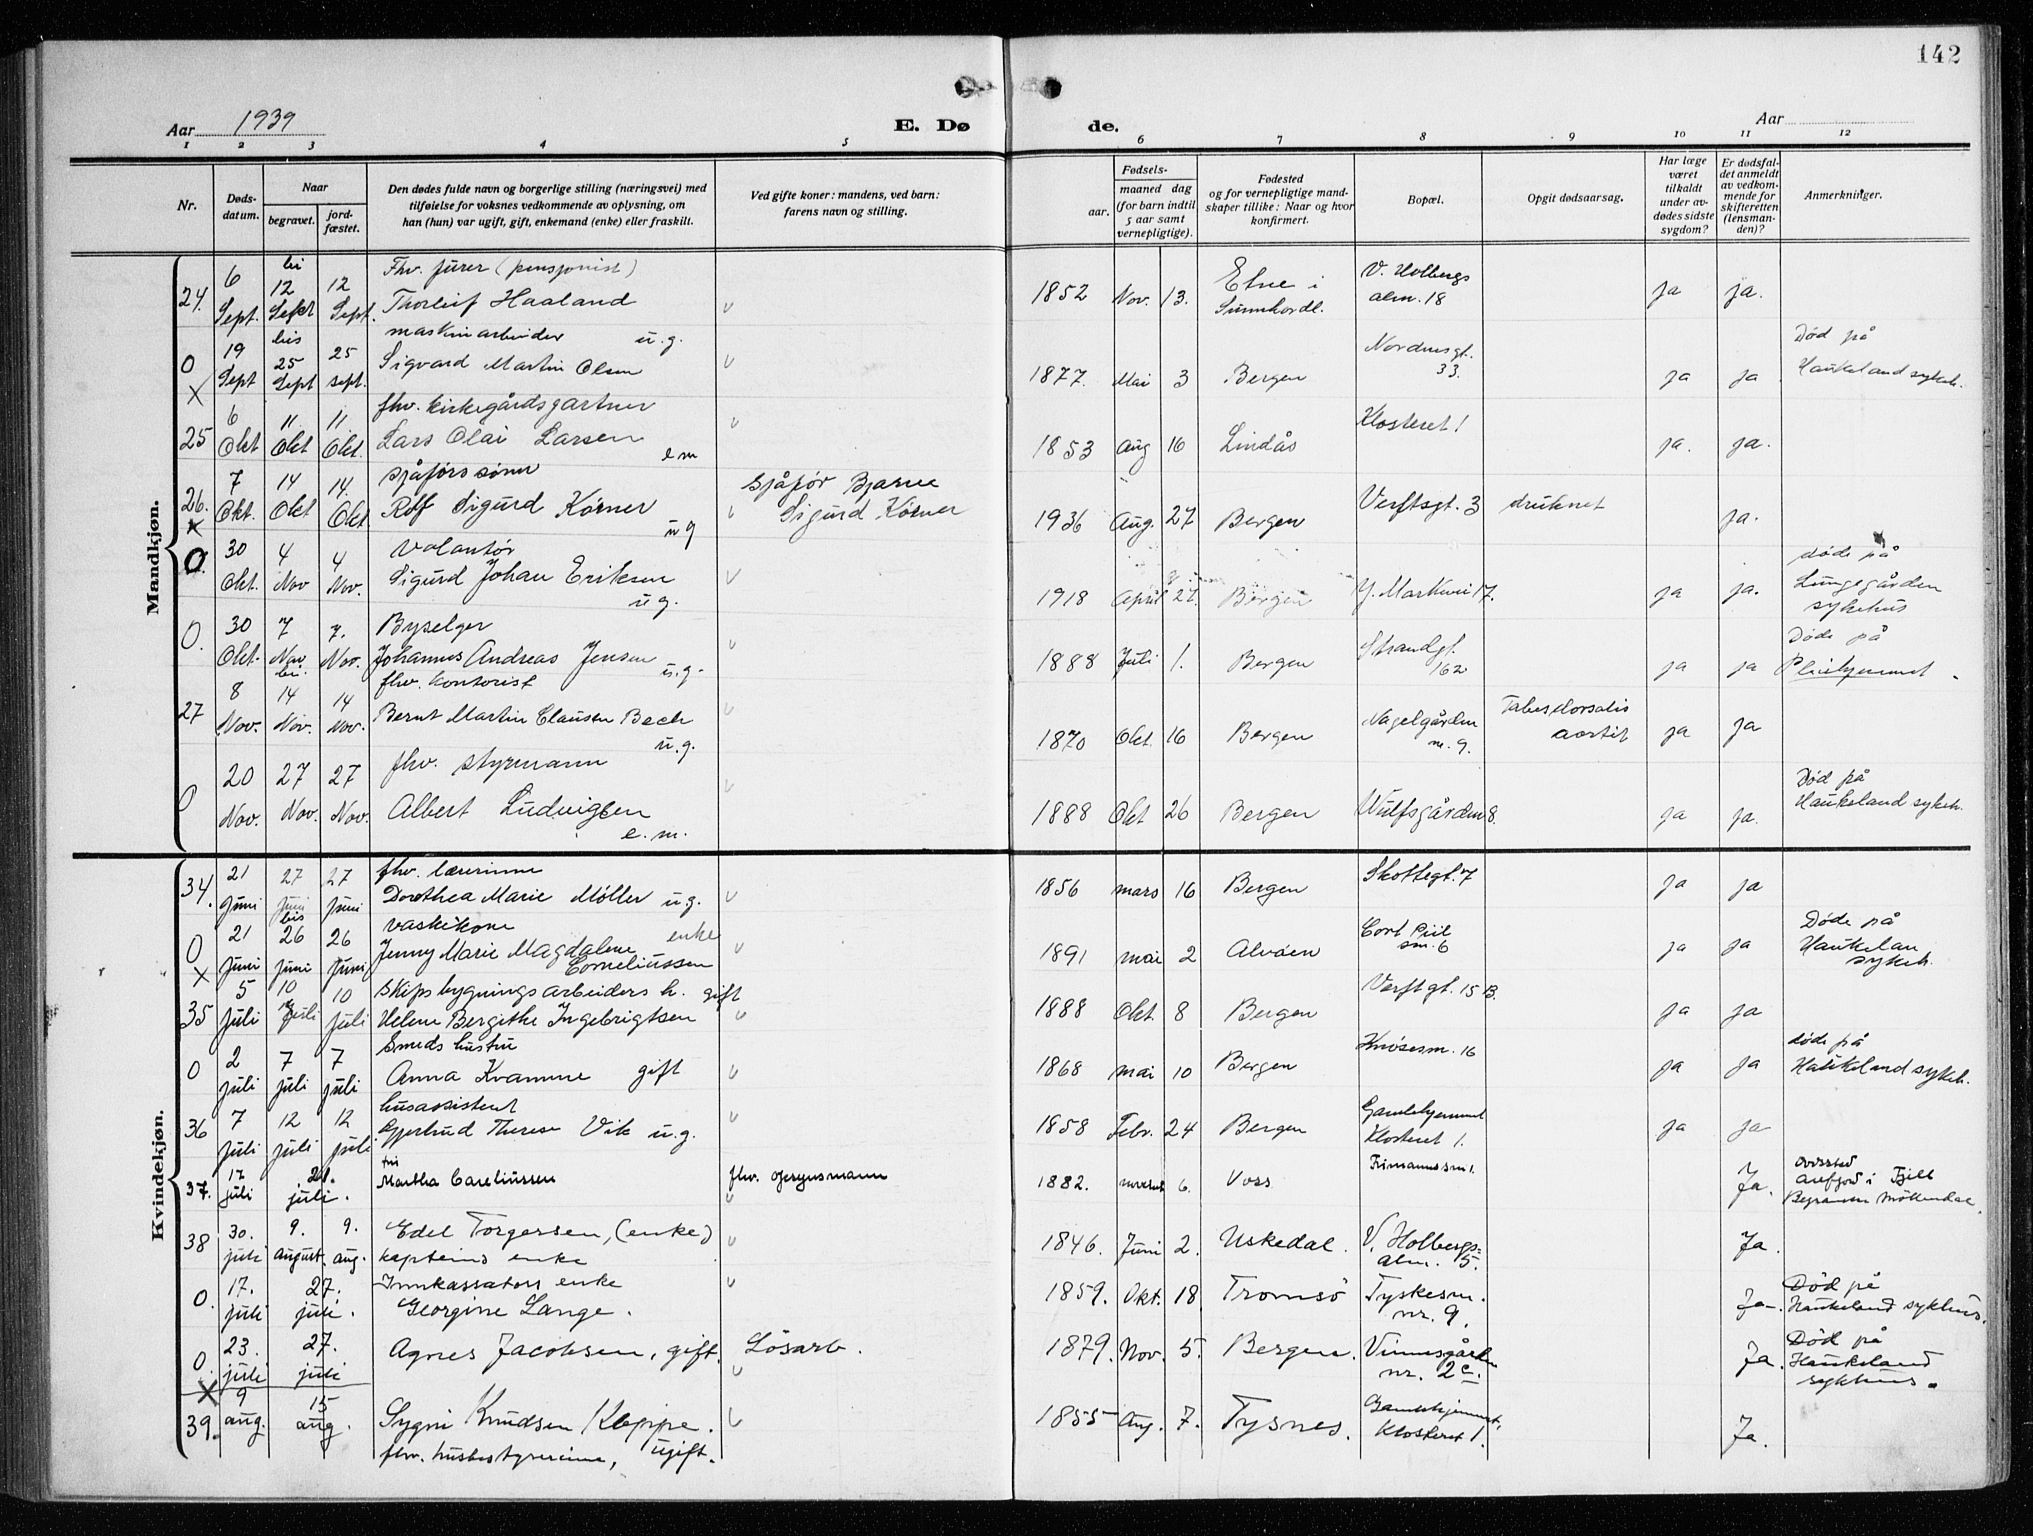 142
Aar 1939
E. Dø
de.
Aar
1 2 3 4 5 6 7 8 9 10 11 12
Nr.
Døds-
datum.
Naar
begravet.
jord-
fæstet.
Den dødes fulde navn og borgerlige stilling (næringsvei) med
tilføielse for voksnes vedkommende av oplysning, om
han (hun) var ugift, gift, enkemand (enke) eller fraskilt.
Ved gifte koner: mandens, ved barn:
farens navn og stilling.
Fødsels-
aar.
maaned dag
(for barn indtil
5 aar samt
vernepligtige).
Fødested
og for vernepligtige mand-
skaper tillike: Naar og hvor
konfirmert.
Bopæl.
Opgit dødsaarsag.
Har læge
været
tilkaldt
under av-
dødes sidste
sygdom?
Er dødsfal-
det anmeldt
av vedkom-
mende for
skifteretten
(lensman-
den)?
Anmerkninger.
Mandkjøn.
24. 6 Sept. 12 Sept 12 Sept. Fhv. furer (pensjonist)
Thorleif Haaland
1852 Nov. 13. Etne i
Sunnhordl. V. Holbergs
alm. 18 ja ja.
0 X 19 Sept bis 25 Sept 25 sept. maskinarbeider u.g.
Sigvard Martin Olsen
1877. Mai 3 Bergen Nordnesgt.
33. ja ja Død på
Haukeland sykeh.
25 6 Okt 11 Okt 11 Okt. fhv. kirkegårdsgartner
Lars Olai Larsen e m
1853 Aug 16 Lindås Klosteret 1 ja. ja.
26. x 7 Okt. 14 Okt 14. Okt sjåførs sønn
Rolf Sigurd Körner u g
sjåfør Bjarne
Sigurd Körner
1936 Aug. 27 Bergen Verftsgt. 3 druknet ja.
0. 30 Okt. 4 Nov 4 Nov. Volontør
Sigurd Johan Eriksen u.g.
1918 April 27. Bergen Y. Markevei 17. ja ja. døde på
Lungegården
sykehus
0. 30 Okt. 7 Nov. 7. Nov. Byselger
Johannes Andreas Jensen u.g.
1888 Juli 1. Bergen Strandgt.
162 ja ja Døde på
Pleiehjemmet
27 8 Nov. 14 Nov. 14 Nov. fhv. kontorist
Bernt Martin Clausen Bech u.g.
1870 Okt. 16 Bergen Nagelgården
nr. 9. Tabes dorsalis
aortit ja ja
0 20 Nov. 27 Nov. 27 Nov. fhv. styrmann
Albert Ludvigsen e.m.
1888 Okt 26 Bergen Wulfsgården 8. ja ja. Død på
Haukeland sykeh.
Kvindekjøn.
34. 21 Juni 27 Juni 27 Juni fhv. lærerinne
Dorothea Marie Møller u.g.
1856 mars 16 Bergen Skottegt. 7 ja ja
0 X 21 Juni bis 26 juni 26 Juni vaskekone enke
Jenny Marie Magdalene
Corneliussen
1891 mai 2 Alvøen Cort Piil
sm. 6 ja ja Døde på
Haukelan
sykeh.
35 5 Juli 10 Juli 10 Juli skipsbygningsarbeiders h. gift
Helene Bergithe Ingebrigtsen
1888 Okt. 8 Bergen Verftgt. 15 B. ja ja
0 2 juli 7 juli 7 juli Smeds hustru
Anna Kvamme gift
1868 mai 10 Bergen Knøsesm. 16 ja ja døde på
Haukeland sykeh.
36 7 juli 12 juli 12 juli husassistent
Gjertrud Therese Vik u.g.
1858 Febr. 24 Bergen Gamlehjemmet
Klosteret 1. ja ja
37. 17 juli 21. juli. fru
Martha Careliussen
1882. 6. Voss Ja.
i Fjell
Møllendal.
38 30. juli 9. august 9. aug. Edel Torgersen, (enke)
kapteins enke
1846. Juni 2. Uskedal. V. Holbergs=
alm. 5. Ja.
0. 17. juli 27. juli. Innkassators enke
Georgine Lange.
1859. Okt. 18 Tromsö Tyskesm.
nr. 9. Ja. Död på
Haukeland sykhus.
0. X 23. juli 27. juli Agnes Jacobsen, gift. Lösarb.
1879. Nov. 5. Bergen. Vinnesgården
nr. 2c. Ja. Död på
Haukeland
sykhus.
39. 9 aug. 15 aug. Sygni Knudsen Kleppe.
fhv. husbestyrerinne, ugift.
1855 Aug. 7. Tysnes. Gamlehjemmet,
Klosteret 1. Ja.